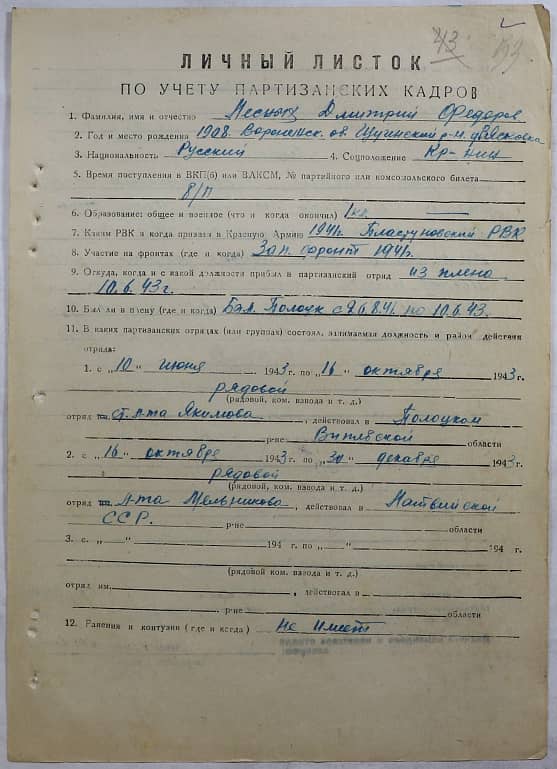 43
ЛИЧНЫЙ ЛИСТОК
ПО УЧЕТУ ПАРТИЗАНСКИХ КАДРОВ
1. Фамилия, имя и отчество Дмитрий Федоров
2. Год и место рождения 1908. Воронежск. об. р-н.
3. Национальность Русский 4. Соцположение Кр-нин
5. Время поступления в ВКП(б) или ВЛКСМ, № партийного или комсомольского билета
б/п
6. Образование: общее и военное (что и когда окончил) 1 кл. —
7. Каким РВК и когда призван в Красную Армию 1941г. Пластуновский РВК
8. Участие на фронтах (где и когда) Зап. фронт 1941г.
9. Откуда, когда и с какой должности прибыл в партизанский отряд из плена
10.6.43г.
10. Был ли в плену (где и когда) Полоцк с 26.8.41 по 10.6.43.
11. В каких партизанских отрядах (или группах) состоял, занимаемая должность и район действия
отряда:
1. с „10" июня 1943 г. по „16" октября 1943 г.
рядовой
(рядовой, ком. взвода и т. д.)
отряд ст. л-та Якимова, действовал в Полоцком
р-не Витебской области
2. с „16" октября 1943 г. по „30" декабря 1943 г.
рядовой
(рядовой, ком. взвода и т. д.)
отряд л-та Мельникова, действовал в Латвийской
ССР. р-не области
3. с „ " 194 г. по „ " 194 г.
(рядовой, ком. взвода и т. д.)
отряд им. , действовал в
р-не области
12. Ранения и контузии (где и когда) Не имеет